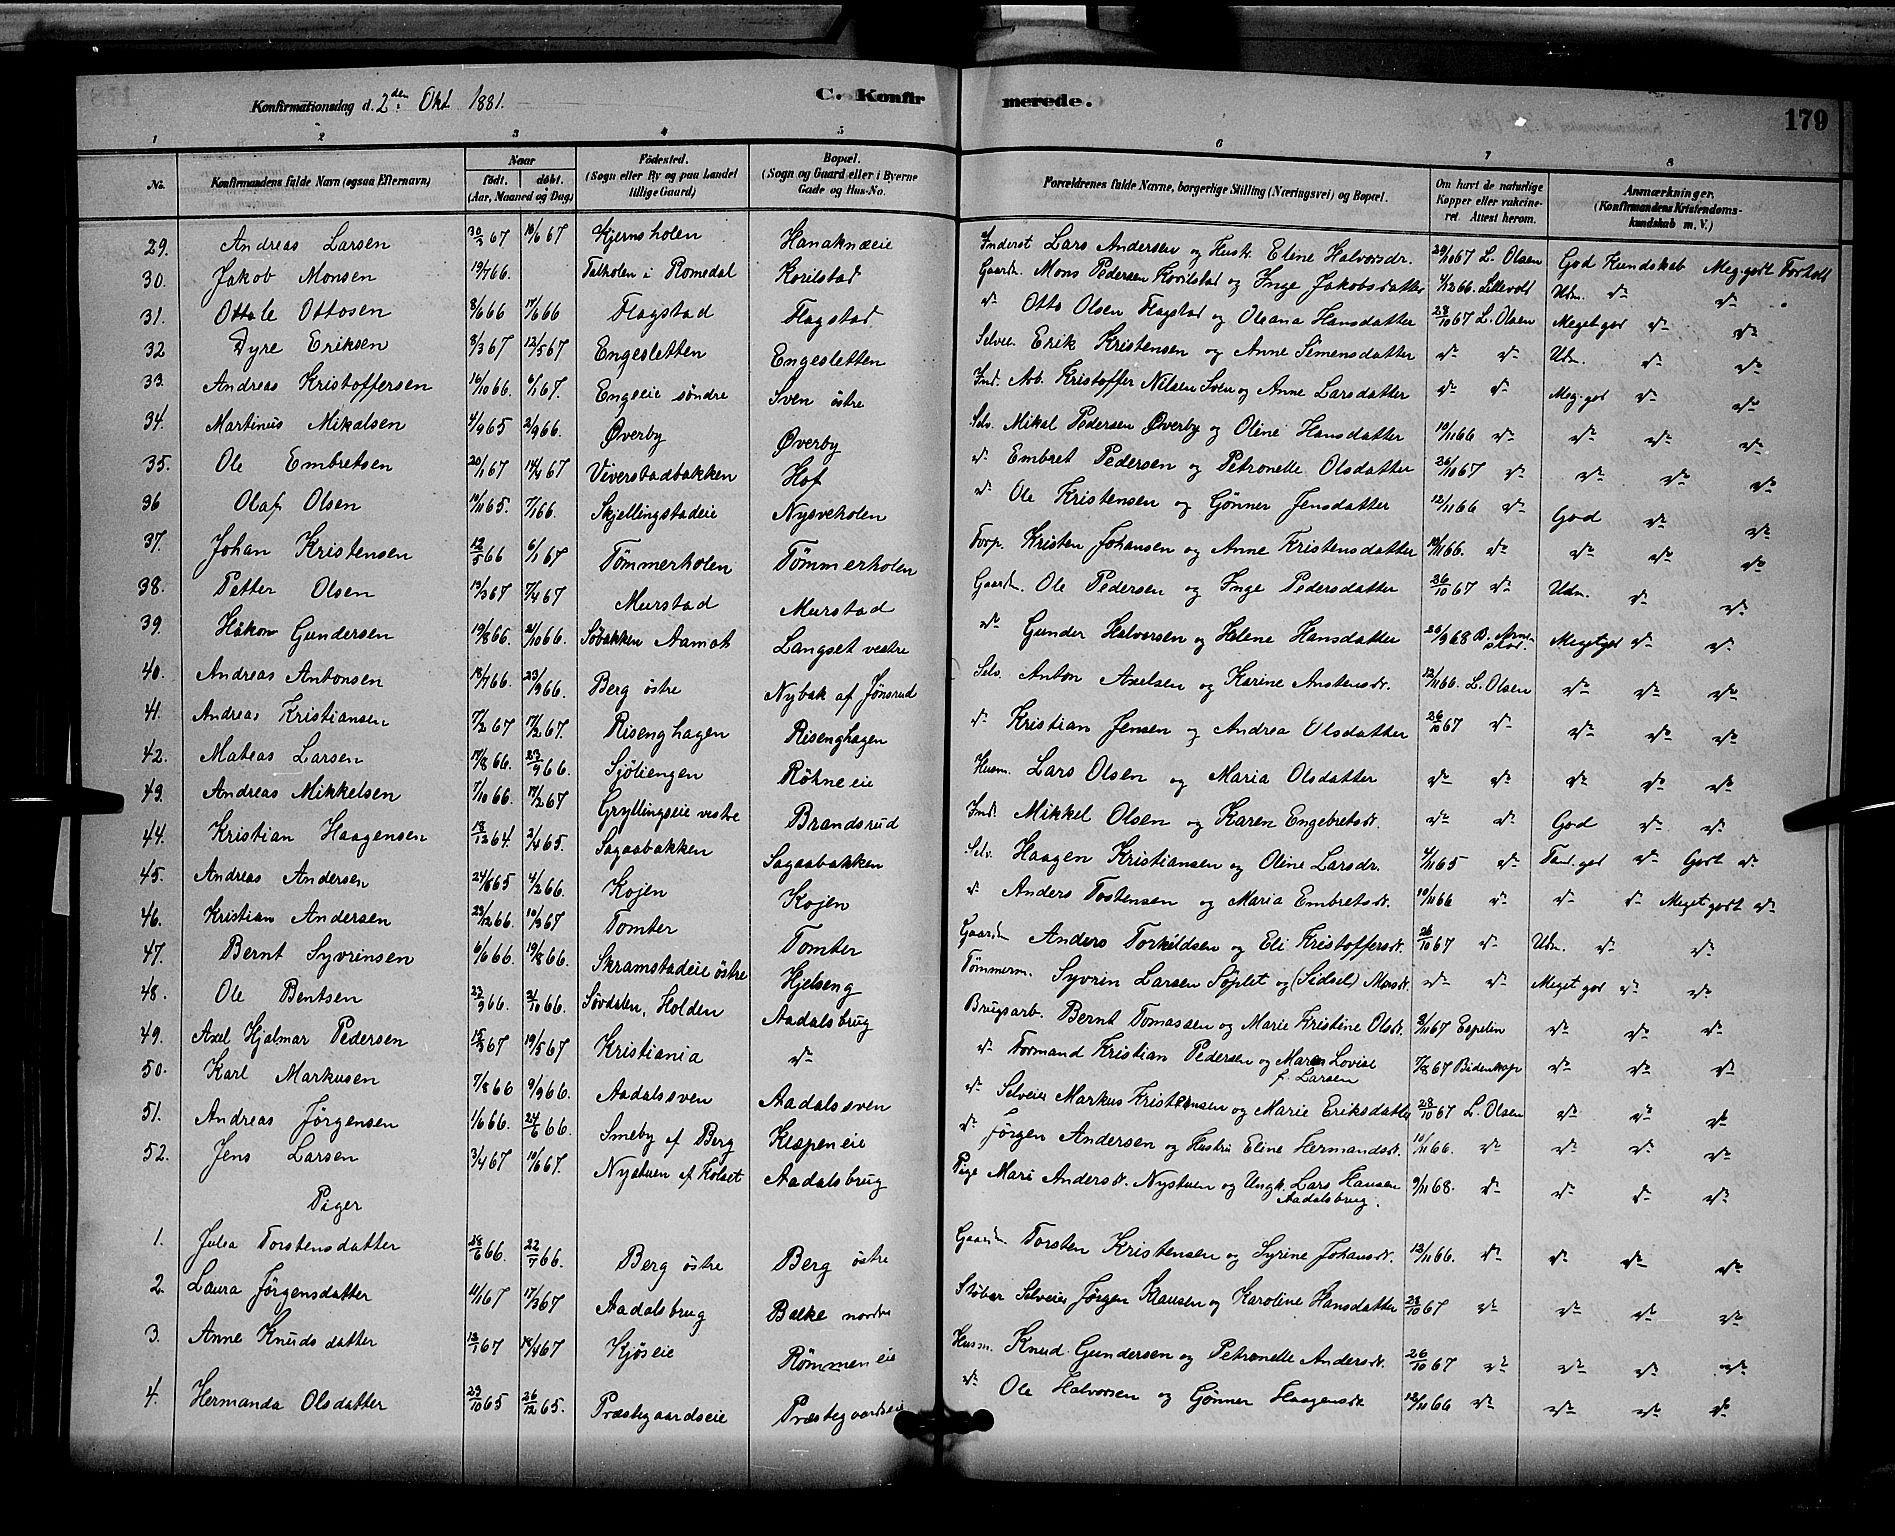 Konfirmationsdag d. 2den Okt 1881.
C. Konfirmerede.
179
1 2 3 4 5 6 7 8
No.
Konfirmandens fulde Navn (ogsaa Efternavn)
Naar
födt. döbt.
(Aar, Maaned og Dag)
Födested.
(Sogn eller By og paa Landet tillige Gaard)
Bopæl.
(Sogn og Gaard eller i Byerne Gade og Hus-No.
Forældrenes fulde Navne, borgerlige Stilling (Næringsvei) og Bopæl.
Om havt de naturlige Kopper eller vakcineret. Attest herom.
Anmærkninger.
(Konfirmandens Kristendomskundskab m. V.)
29. Andreas Larsen 30/3 67 10/6 67 Kjernsholen Hanaknæeie Inderst Lars Andersen og Hustr. Eline Halvorsdr. 29/10 67 L. Olsen God Kundskab Meg. godt Forhold
30. Jakob Monsen 19/7 66. Falholen i Romedal Korilstad Gaardm. Mons Pedersen Korilstad og Inge Jakobsdatter 4/12 66. Lillevold Udm. do do
31. Ottale Ottosen 8/6 66 17/6 66 Flagstad Flagstad do Otto Olsen Flagstad og Oleana Hansdatter 28/10 67 L. Olsen Meget god do do
32 Dyre Eriksen 8/3 67 12/5 67 Engesletten Engesletten Selvei. Erik Kristensen og Anne Simensdatter do do Udm. do do
33. Andreas Kristoffersen 16/10 66. 6/1 67. Engeeie søndre Sven östre Ind. Arb. Kristoffer Nilsen Sven og Anne Larsdatter do do Meg. god do do
34. Martinus Mikalsen 4/9 65 2/9 66. Øverby Øverby Selv. Mikal Pedersen Øverby og Oline Hansdatter 19/11 66 do do do do
35. Ole Embretsen 20/1 67 14/4 67 Viverstadbakken Hof do Embret Pedersen og Petronelle Olsdatter 26/10 67 do do do do
36 Olaf Olsen 19/11 65. 7/1 66. Skjellingstadeie Nysveholen do Ole Kristensen og Gønner Jensdatter 12/11 66 do God do do
37. Johan Kristensen 12/5 66 6/1 67 Tömmerholen Tömmerholen Forp. Kristen Johansen og Anne Kristensdatter 19/11 66. do do do do
38. Petter Olsen 13/3 67 7/4 67 Murstad Murstad Gaardm. Ole Pedersen og Inge Pedersdatter 26/10 67 do Udm. do do
39. Håkon Gundersen 19/8 66. 21/10 66. Söbakken Aamot Langset vestre do Gunder Halvorsen og Helene Hansdatter 26/9 68 Meget god do do
40. Andreas Antonsen 18/7 66. 23/9 66. Berg östre Nybak af Jönsrud Selv. Anton Axelsen og Karine Anstensdr. 12/11 66. L. Olsen do do do
41. Andreas Kristiansen 7/2 67 17/2 67. Risenghagen Risenghagen do Kristian Jensen og Andrea Olsdatter 26/10 67 do do do do
42. Mateas Larsen 17/8 66. 23/9 66. Sjöliengen Röhneeie Husm. Lars Olsen og Maria Olsdatter do do do do do
43. Andreas Mikkelsen 7/10 66. 17/2 67 Gryllingseie vestre Brandsrud Ind. Mikkel Olsen og Karen Engebretsdr. do do God do do
44. Kristian Haagensen 13/12 64. 2/4 65. Sagaabakken Sagaabakken Selv. Haagen Kristiansen og Oline Larsdr. 4/11 65 do Taal. god do Godt do
45. Andreas Andersen 24/8 65 4/2 66. Kojen Kojen do Anders Tostensen og Maria Embretsdr. 19/11 66 do do do Meget godt do
46. Kristian Andersen 29/12 66. 10/3 67 Tomter Tomter Gaardm Anders Torkildsen og Eli Kristoffersdr. 26/10 67 do Udm. do do
47. Bernt Syvrinsen 6/6 66. 19/8 66. Skramstadeie östre Hjelseng Tömmerm. Syvrin Larsen Söplet og (Sidsel) Monsdr. do do Meget god do do
48. Ole Bentsen 23/9 66. 21/10 66. Sövdalen, Holden Aadalsbrug Brugsarb. Bernt Tomassen og Marie Kristine Olsdr. 2/11 67 Espelin do do do
49. Axel Hjalmar Pedersen 15/3 67 19/5 67 Kristiania do do Formand Kristian Pedersen og Maren Lovise f. Larsen 7/8 67 Bidenkap do do do
50. Karl Markusen 7/8 66 9/9 66. Aadalssven Aadalssven do Selveier Markus Kristensen og Marie Eriksdatter 28/10 67 L. Olsen do do do
51. Andreas Jørgensen 1/6 66. 24/6 66. Smeby af Berg Klæpeneie do Jörgen Andersen og Hustru Eline Hermandsdr. 10/11 66. do do do do
52. Jens Larsen 3/4 67 10/6 67. Nystuen af Kolset Aadalsbrug Pige Mari Andersdr. Nystuen og Ungk. Lars Hansen Aadalsbrug. 9/11 68. do do do do
Piger
1. Julia Torstensdatter 28/6 66. 22/7 66. Berg östre Berg östre Gaardm Torsten Kristensen og Syrine Johansdr. 12/11 66. do do do do
2. Laura Jørgensdatter 11/1 67 17/3 67 Aadalsbrug Balke nordre Støber Selveier Jørgen Klausen og Karoline Hansdatter 28/10 67 do do do do
3. Anne Knudsdatter 12/1 67 14/4 67 Kjöseie Römmeneie Husm. Knud Gundersen og Petronelle Andersdr. 26/10 67 do do do do
4. Hermanda Olsdatter 29/10 65 26/12 65. Præstegaardseie Præstegaardseie do Ole Halvorsen og Gønner Haagensdr 12/11 66 do do do do